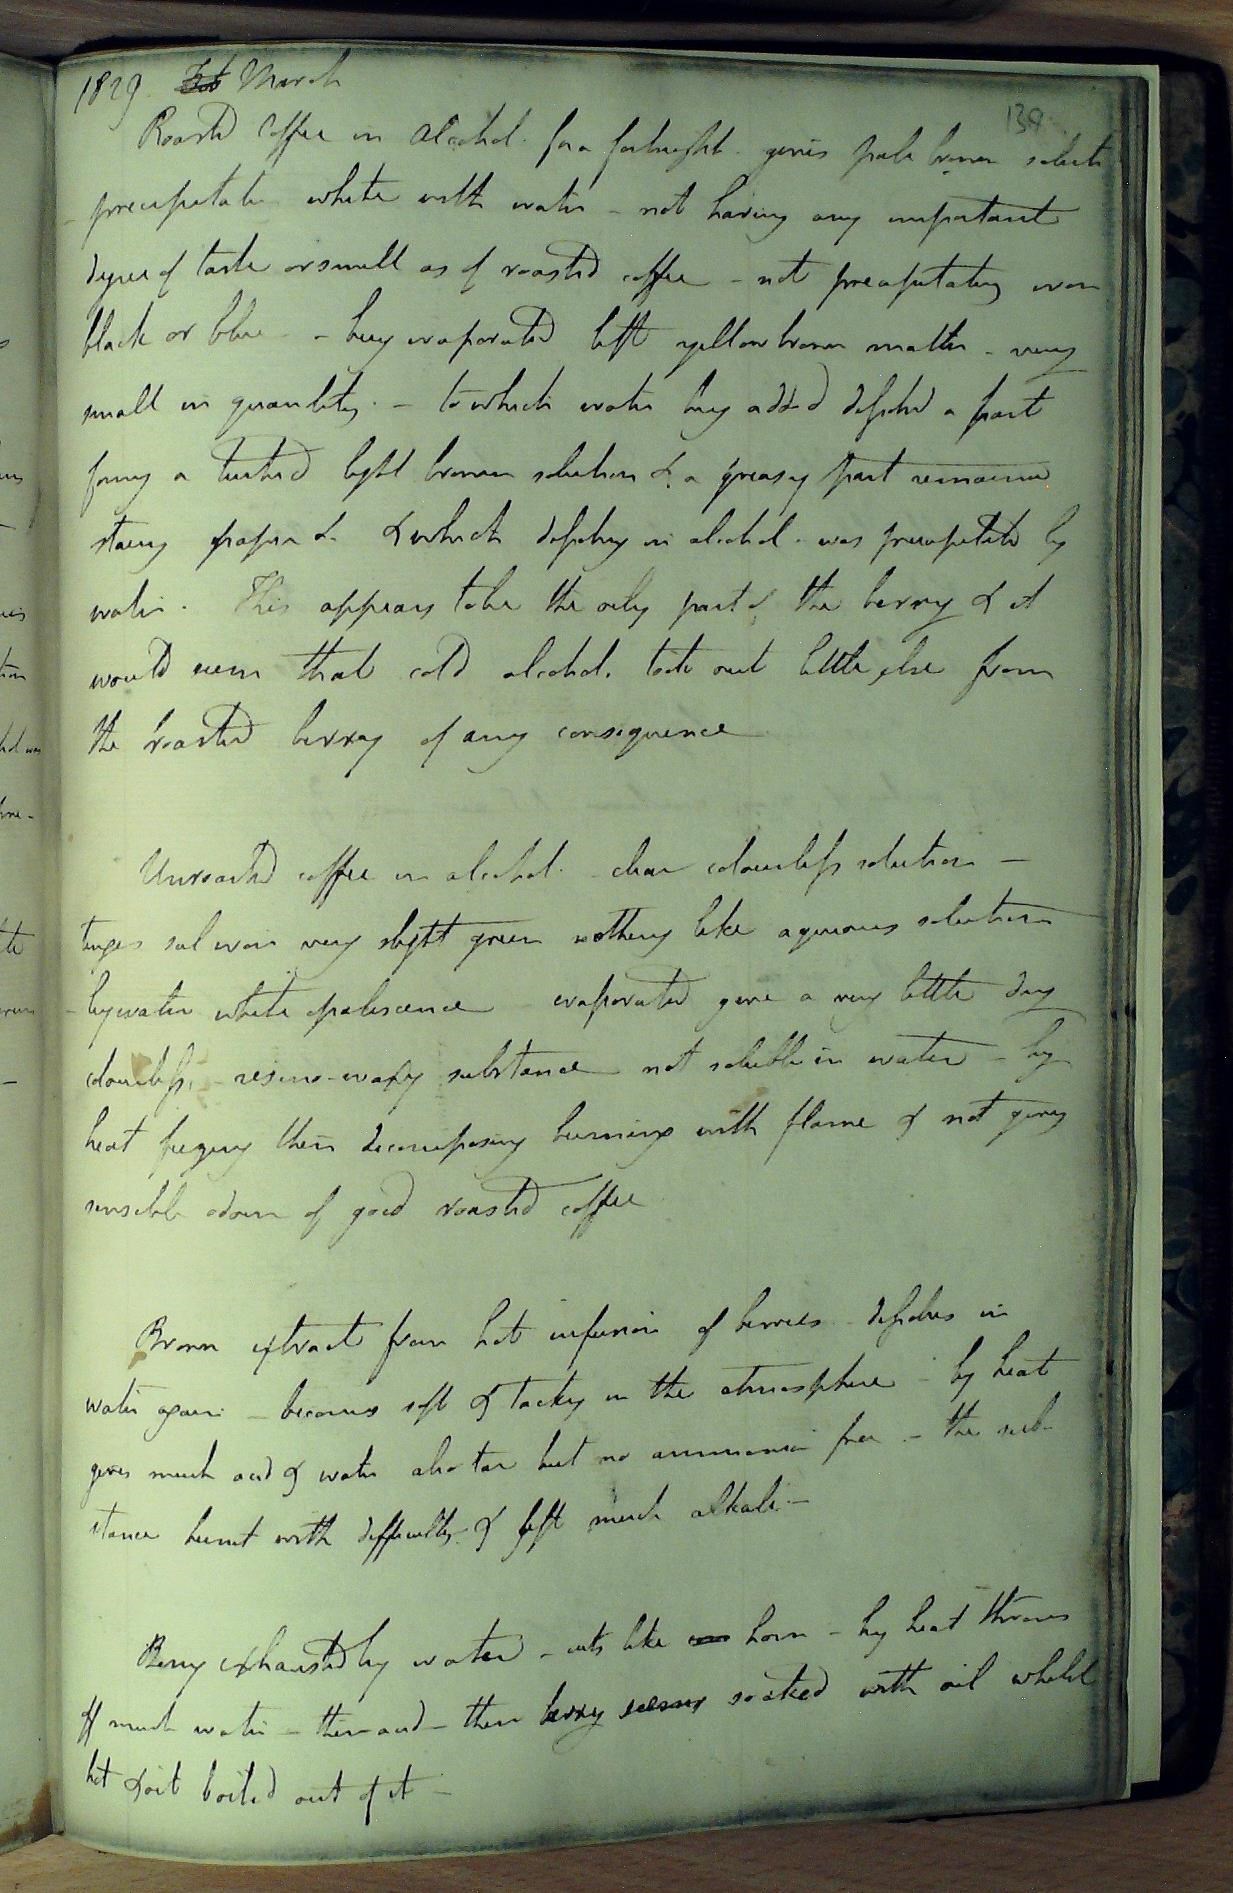 1829 Feb March
139
Roasted Coffee in Alcohol for a fortnight gives pale brown soluti
- precipitates white with water - not having any important
degree of taste or smell as of roasted coffee - not precipitating iron
black or blue - being evaporated left yellow brown matter - very
small in quantity - to which water being added dissolved a part
forming a turbid light brown solution & a greasy part remained
staining paper & & which dissolving in alcohol was precipitated by
water. This appears to be the oily part of the berry & it
would seem that cold alcohol took out little else from
the roasted berry of any consequence
Unroasted coffee in alcohol - clear colourless solution -
tinges sul iron very slight green nothing like aqueous solution
- by water white opalescence evaporated gave a very little dry
colourless - resino-waxy substance not soluble in water - by
heat then decomposing burning with flame & not giving
sensible odour of good roasted coffee
Brown extract from hot infusion of berries dissolves in
water again - becomes soft & tacky in the atmosphere - by heat
gives much acid & water also tar but no ammonia free - the sub-
stance burnt with difficulty & left much alkali -
Berry exhausted by water - cuts like horn - by heat throws
off much water - then acid - then berry seems soaked with oil whilst
hot & oil boiled out of it -